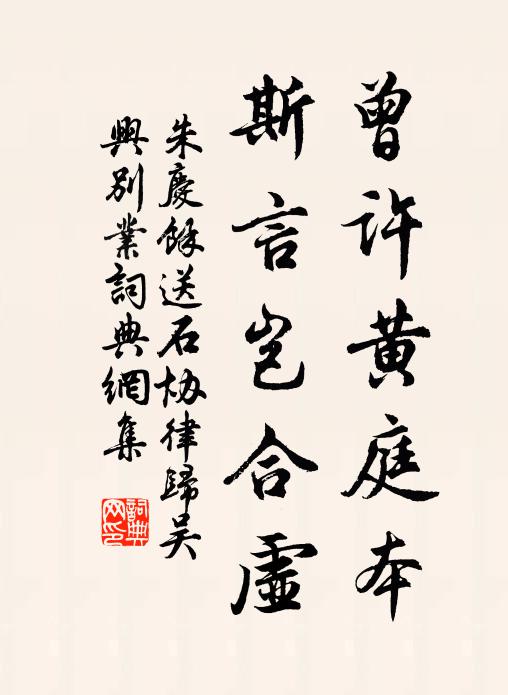 曾許黃庭本
斯言豈合虛
朱慶餘送石協律歸吳
興別業詞典網集
詞典
网印